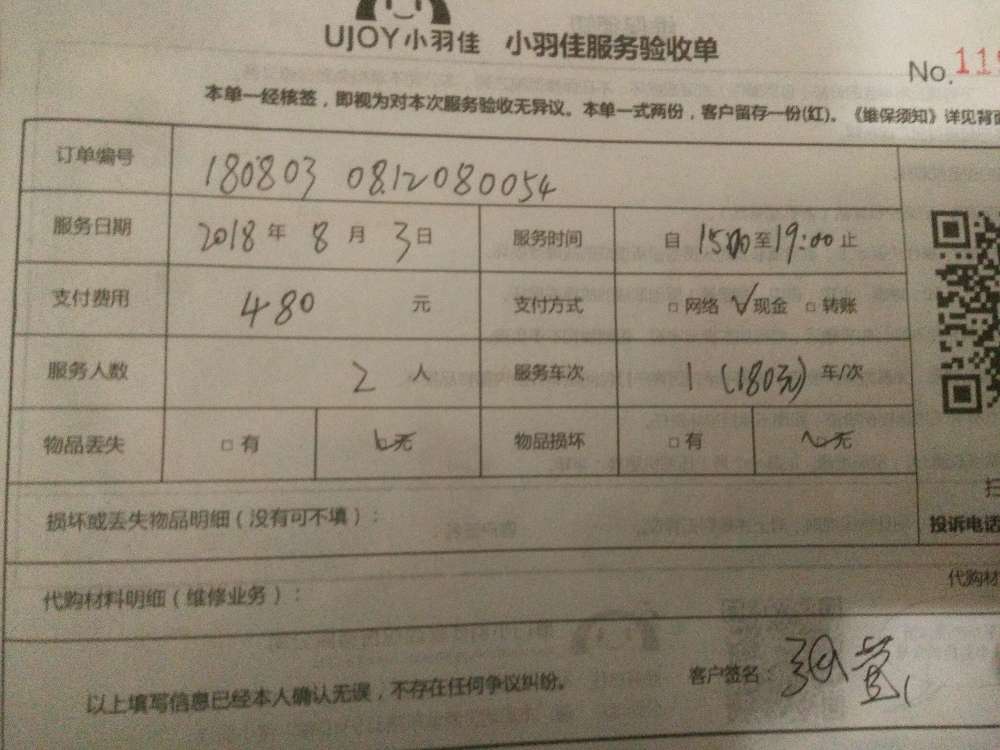 UJOY小羽佳 小羽佳服务验收单
No.119
本单一经核签，即视为对本次服务验收无异议。本单一式两份，客户留存一份(红)。《维保须知》详见背面
订单编号 180803 0812080054
服务日期 2018年8月3日 服务时间 自15:00至19:00止
支付费用 480元 支付方式 □网络 ☑现金 □转账
服务人数 2人 服务车次 1(180元)车/次
物品丢失 □有 ☑无 物品损坏 □有 ☑无
损坏或丢失物品明细（没有可不填）：
投诉电话
代购材料明细（维修业务）： 代购材
以上填写信息已经本人确认无误，不存在任何争议纠纷。 客户签名：